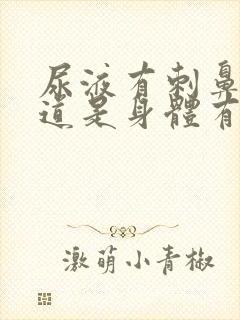 尿液有刺鼻
道是身體有
激萌小青椒